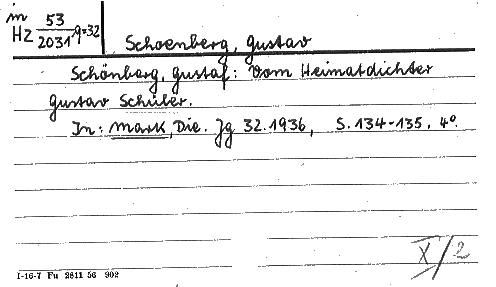 in
Hz 53/2031 g=32
Schoenberg, Gustav
Schönberg, Gustaf: Vom Heimatdichter
Gustav Schüler.
In: Mark, Die. Jg 32.1936, S. 134-135. 4°.
X/2
I-16-7 Fu 2811 56 902